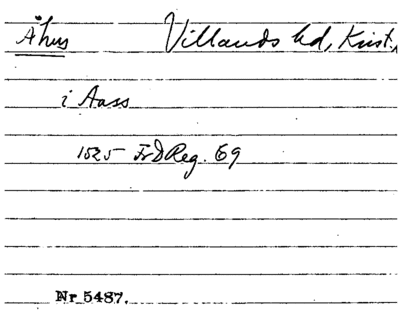 Åhus Villands hd, Krist.
i Aass
1525 FrDReg. 69
Nr 5487.